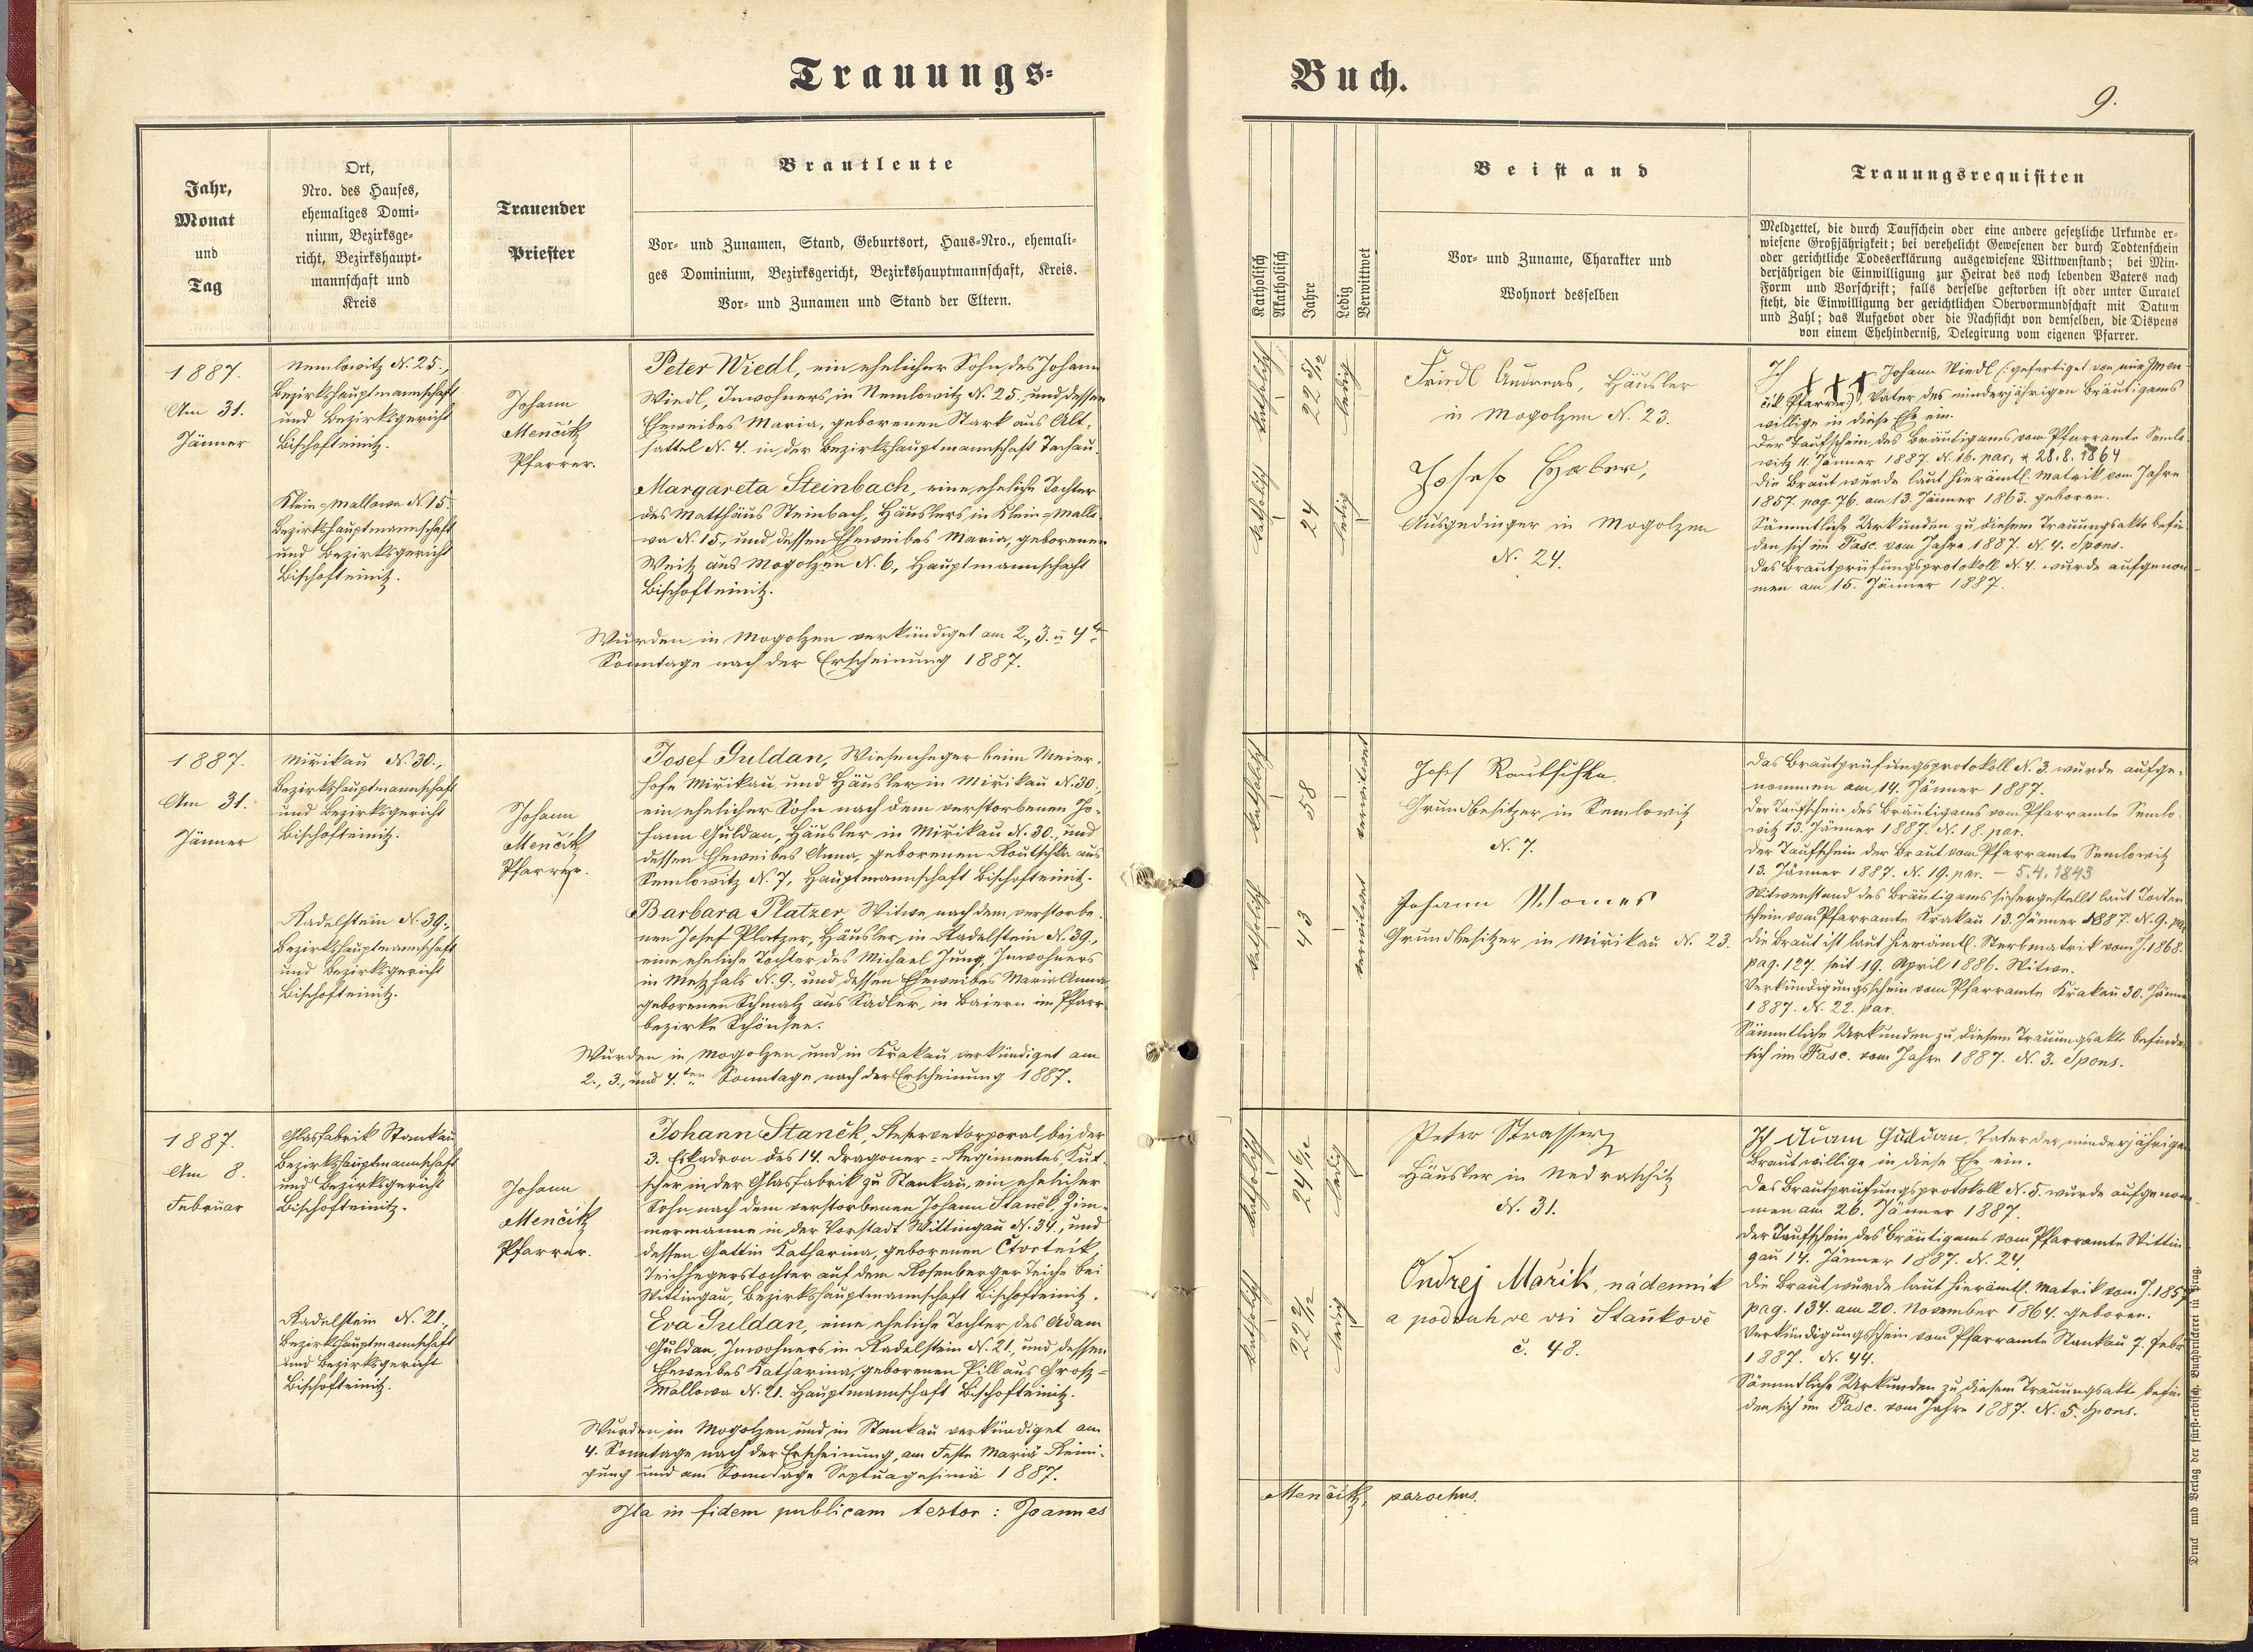 Trauungs=
Buch.
9.
Jahr,
Monat
und
Tag
Ort,
Nro. des Hauses,
ehemaliges Domi-
nium, Bezirksge-
richt, Bezirkshaupt-
mannschaft und
Kreis
Trauender
Priester
Brautleute
Vor- und Zunamen, Stand, Geburtsort, Haus-Nro., ehemali-
ges Dominium, Bezirksgericht, Bezirkshauptmannschaft, Kreis.
Vor- und Zunamen und Stand der Eltern.
Katholisch
Akatholisch
Jahre
Ledig
Verwittwet
Beistand
Vor- und Zuname, Charakter und
Wohnort desselben
Trauungsrequisiten
Meldzettel, die durch Taufschein oder eine andere gesetzliche Urkunde er-
wiesene Großjährigkeit; bei verehelicht Gewesenen der durch Todtenschein
oder gerichtliche Todeserklärung ausgewiesene Wittwenstand; bei Min-
derjährigen die Einwilligung zur Heirat des noch lebenden Vaters nach
Form und Vorschrift; falls derselbe gestorben ist oder unter Curatel
steht, die Einwilligung der gerichtlichen Obervormundschaft mit Datum
und Zahl; das Aufgebot oder die Nachsicht von demselben, die Dispens
von einem Ehehinderniß, Delegirung vom eigenen Pfarrer.
1887.
Am 31.
Jänner
Nemlowitz N. 25.,
Bezirkshauptmannschaft
und Bezirksgericht
Bischofteinitz.
Klein-Mallowa N. 15.
Bezirkshauptmannschaft
und Bezirksgericht
Bischofteinitz.
Johann
Menčik
Pfarrer.
Peter Wiedl, ein ehelicher Sohn des Johann
Wiedl, Inwohners in Nemlowitz N. 25., und dessen
Eheweibes Maria, geborenen Stark aus Alt-
sattel N. 4. in der Bezirkshauptmannschaft Tachau.
Margareta Steinbach, eine eheliche Tochter
des Matthäus Steinbach, Häuslers in Klein-Mallo-
wa N. 15., und dessen Eheweibes Maria, geborenen
Weitz aus Mogolzen N. 6., Hauptmannschaft
Bischofteinitz.
Wurden in Mogolzen verkündiget am 2., 3. u 4t
Sonntage nach der Erscheinung 1887.
katholisch
22 5/12
ledig
katholisch
24
ledig
Friedl Andreas, Häusler
in Mogolzen N. 23.
Josef Haber,
Ausgedinger in Mogolzen
N. 24.
Ich ††† Johann Wiedl (: gefertiget von mir Men-
čik Pfarrer) Vater des minderjährigen Bräutigams
willige in diese Ehe ein.
Der Taufschein des Bräutigams vom Pfarramte Semlo-
witz 11. Jänner 1887. N. 16. par, * 28.8.1864
Die Braut wurde laut hierämtl. Matrik vom Jahre
1857. pag. 76. am 13. Jänner 1863. geboren.
Sämmtliche Urkunden zu diesem Trauungsakte befin-
den sich im Fasc. vom Jahre 1887. N. 4. Spons.
Das Brautprüfungsprotokoll N. 4. wurde aufgenom-
men am 15. Jänner 1887.
1887.
Am 31.
Jänner
Mirikau N. 30.,
Bezirkshauptmannschaft
und Bezirksgericht
Bischofteinitz.
Radelstein N. 39.,
Bezirkshauptmannschaft
und Bezirksgericht
Bischofteinitz.
Johann
Menčik
Pfarrer.
Josef Guldan, Wiesenheger beim Meier-
hofe Mirikau und Häusler in Mirikau N. 30.,
ein ehelicher Sohn nach dem verstorbenen Jo-
hann Guldan, Häusler in Mirikau N. 30., und
dessen Eheweibes Anna, geborenen Routschka aus
Semlowitz N. 7, Hauptmannschaft Bischofteinitz.
Barbara Platzer, Witwe nach dem verstorbe-
nen Josef Platzer, Häusler in Radelstein N. 39.,
eine eheliche Tochter des Michael Jung, Inwohners
in Metzhals N. 9., und dessen Eheweibes Maria Anna,
geborenen Schmalz aus Sadler, in Baiern im Pfarr-
bezirke Schönsee.
Wurden in Mogolzen und in Krakau verkündiget am
2., 3., und 4.ten Sonntage nach der Erscheinung 1887.
katholisch
58
verwitwet
katholisch
43
verwitwet
Josef Rautschka
Grundbesitzer in Semlowitz
N. 7.
Johann
Grundbesitzer in Mirikau N. 23.
Das Brautprüfungsprotokoll N. 3. wurde aufge-
nommen am 14. Jänner 1887.
Der Taufschein des Bräutigams vom Pfarramte Semlo-
witz 13. Jänner 1887. N. 18. par.
Der Taufschein der Braut vom Pfarramte Semlowitz
13. Jänner 1887. N. 19. par. - 5.4.1843
Witwenstand des Bräutigams sichergestellt laut Todten-
schein vom Pfarramte Krakau 13. Jänner 1887. N. 9. par
Die Braut ist laut hierämtl. Sterbmatrik vom J. 1868.
pag. 127. seit 19. April 1886. Witwe.
Verkündigungsschein vom Pfarramte Krakau 30. Jänner
1887. N. 22. par.
Sämmtliche Urkunden zu diesem Trauungsakte befinden
sich im Fasc. vom Jahre 1887. N. 3. Spons.
1887.
Am 8.
Februar
Glasfabrik Stankau
Bezirkshauptmannschaft
und Bezirksgericht
Bischofteinitz.
Radelstein N. 21.,
Bezirkshauptmannschaft
und Bezirksgericht
Bischofteinitz.
Johann
Menčik
Pfarrer.
Johann Staněk, Reservekorporal bei der
3. Eskadron des 14. Dragoner-Regimentes, Kut-
scher in der Glasfabrik zu Stankau, ein ehelicher
Sohn nach dem verstorbenen Johann Staněk, Zim-
mermanne in der Vorstadt Wittingau N. 34., und
dessen Gattin Katharina, geborenen Čtvrtník,
Teichhegerstochter auf dem Rosenberger Teiche bei
Wittingau, Bezirkshauptmannschaft Bischofteinitz.
Eva Guldan, eine eheliche Tochter des Adam
Guldan, Inwohners in Radelstein N. 21., und dessen
Eheweibes Katharina, geborenen Pill aus Groß-
Mallowa N. 21. Hauptmannschaft Bischofteinitz.
Wurden in Mogolzen und in Stankau verkündiget am
4. Sonntage nach der Erscheinung, am Feste Mariä Reini-
gung und am Sonntage Septuagesimä 1887.
katholisch
24 6/12
ledig
katholisch
22 2/12
ledig
Peter Strasser
Häusler in Nedraschitz
N. 31.
Ondrej Mařík, nádenník
a podruh ve vsi Staňkově
č. 48.
Ich Adam Guldan, Vater der minderjährigen
Braut willige in diese Ehe ein.
Das Brautprüfungsprotokoll N. 5. wurde aufgenom-
men am 26. Jänner 1887.
Der Taufschein des Bräutigams vom Pfarramte Wittin-
gau 14. Jänner 1887. N. 24.
Die Braut wurde laut hierämtl. Matrik vom J. 1857
pag. 134. am 20. November 1864. geboren.
Verkündigungsschein vom Pfarramte Stankau 7. Febr
1887. N. 44.
Sämmtliche Urkunden zu diesem Trauungsakte befin-
den sich im Fasc. vom Jahre 1887. N. 5. Spons.
Ita in fidem publicam testor: Joannes
Menčik, parochus.
Druck und Verlag der fürst-erzbisch. Buchdruckerei in Prag.